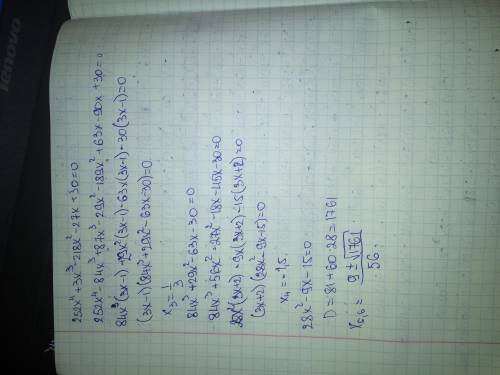 lenovo
252x⁴+3x³-218x²-27x+30=0
252x⁴-84x³+87x³-29x²-189x²+63x-90x+30=0
84x³(3x-1)+29x²(3x-1)-63x(3x-1)-30(3x-1)=0
(3x-1)(84x³+29x²-63x-30)=0
x₃=1/3
84x³+29x²-63x-30=0
84x³+56x²-27x²-18x-45x-30=0
28x²(3x+2)-9x(3x+2)-15(3x+2)=0
(3x+2)(28x²-9x-15)=0
x₄=-1,5
28x²-9x-15=0
D=81+60·28=1761
x₅,₆=(9±√1761)/56.